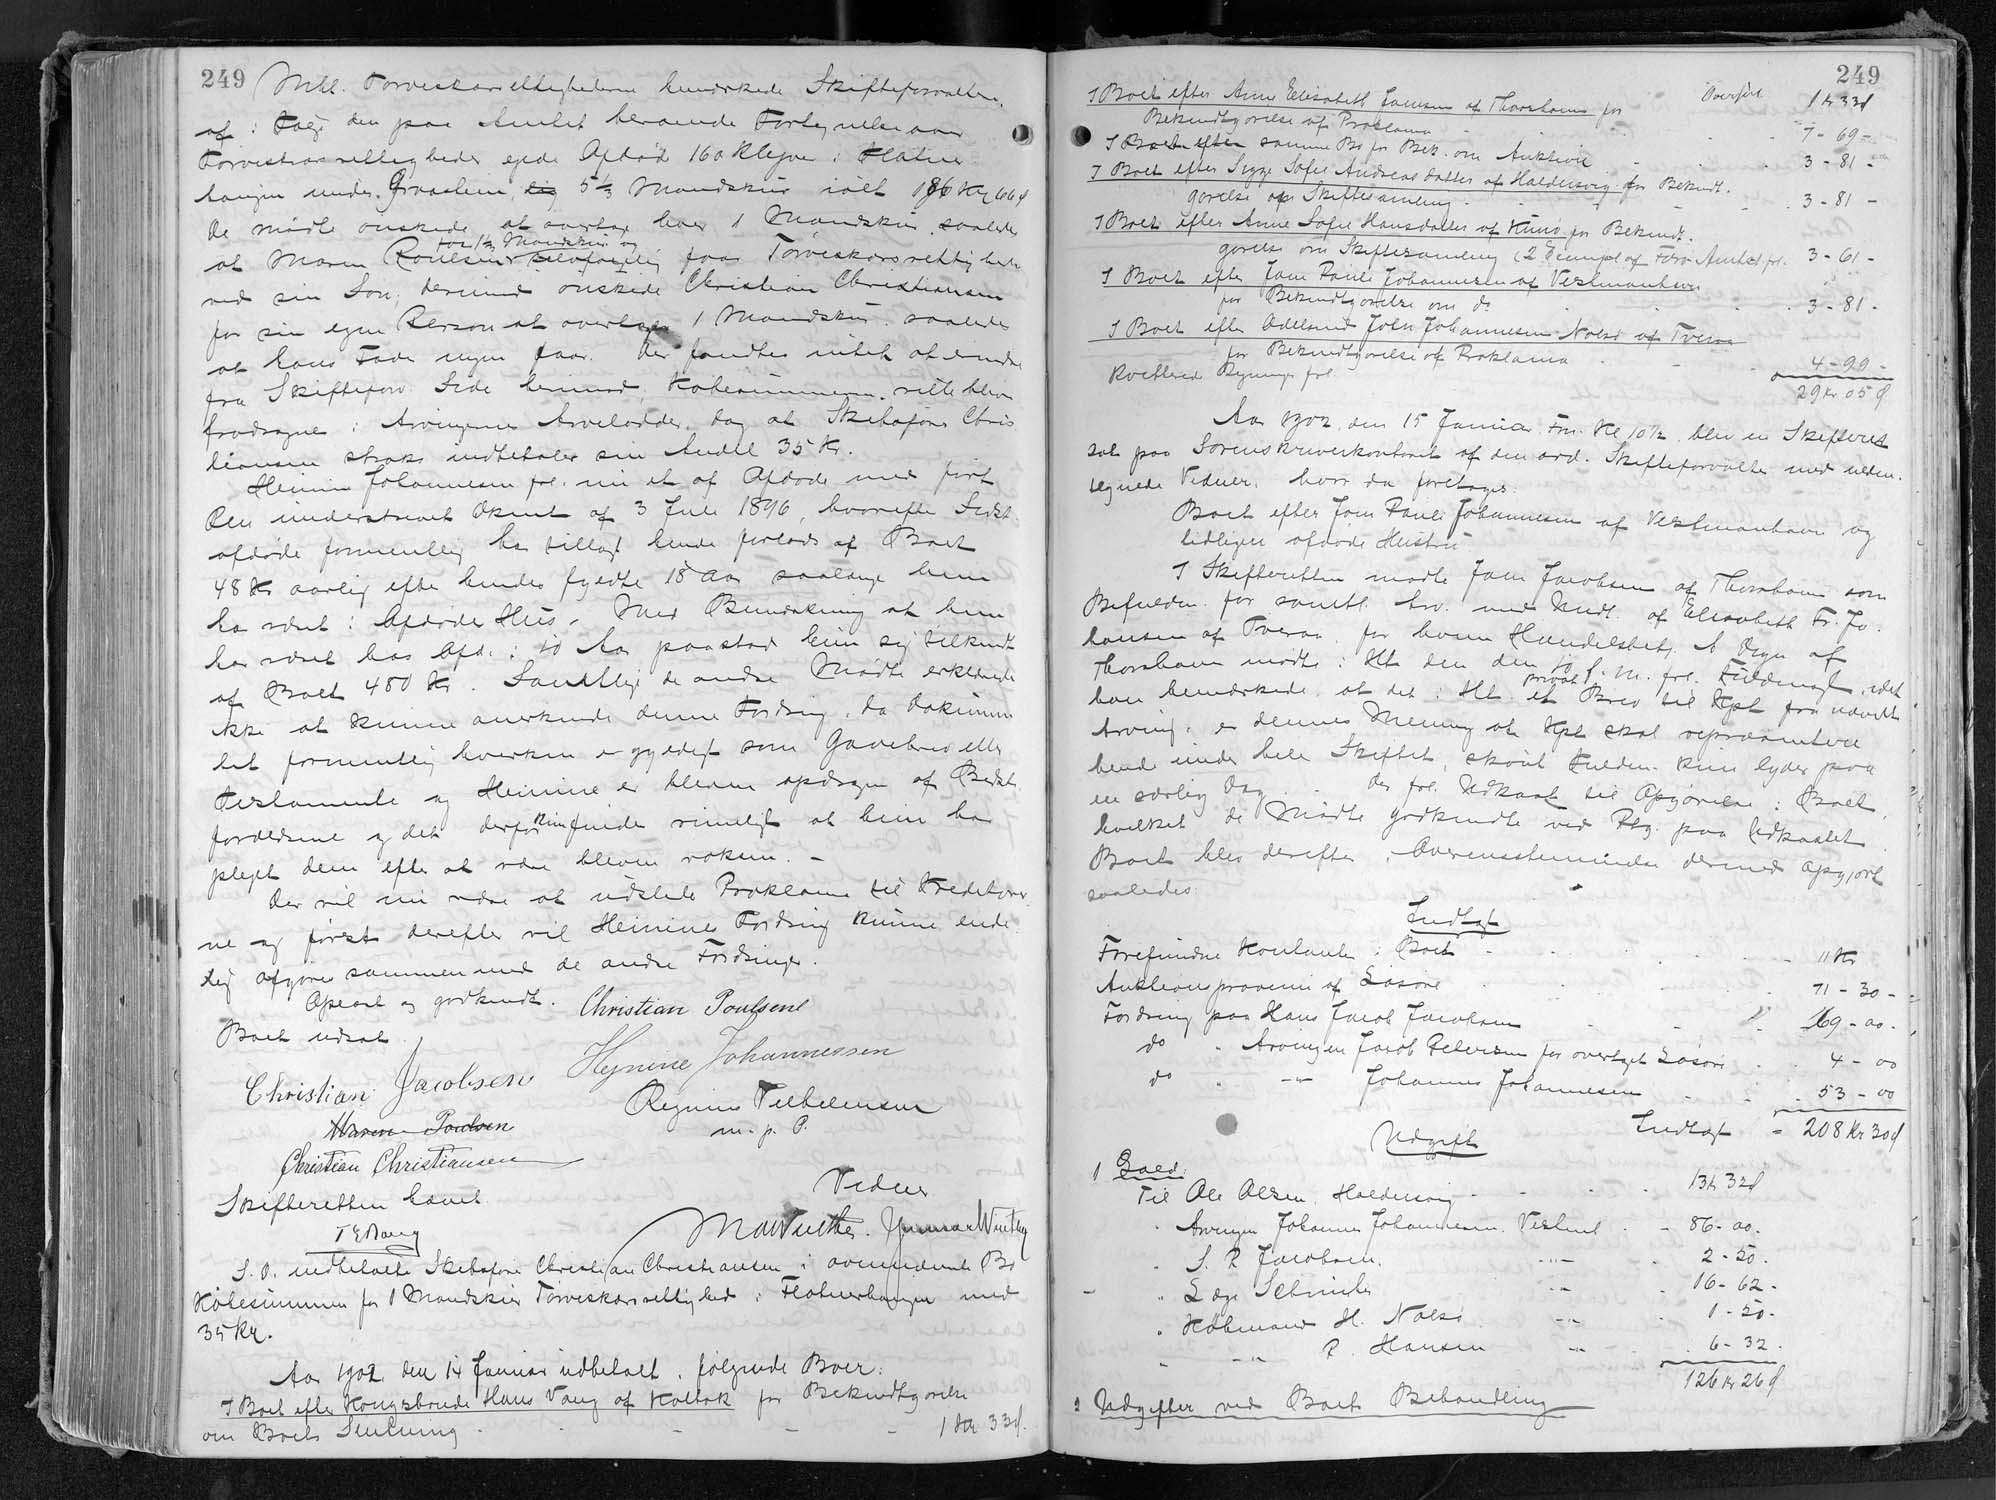 249
Mhl. Tørveskærsrettighederne bemærkede Skifteforvalteren,
at i Følge den paa Amtet beroende Fortegnelse over
Tørveskærsrettigheder ejede Afdøde 160 Klyver i Flatne
haugen under Graasten, 5 1/3 Mandskur ialt 186 Kr 66 d
De mødte ønskede at overtage hver 1 Mandskur, saaledes
at Maren Poulsen for 1 1/3 Mandskur og faar Tørveskærsrettighed
ved sin Søn, derimod ønskede Christian Christiansen
for sin egen Person at overtage 1 Mandskur saaledes
at hans Fader ingen faar. Der fandtes intet at erindre
fra Skifteforv. Side herimod. Købesummen vilde blive
fradragne i Arvingernes Arvelodder, dog at Skibsfører Chris
tiansen straks indbetaler sin Andel 35 Kr.
Heinine Johannesen frl. nu et af Afdøde med ført
Pen underskrevet Dkmt af 3 Juli 1896, hvorefter Sidst
afdøde formentlig har tillagt hende forlods af Boet
48 Kr aarlig efter hendes fyldte 18 Aar saalænge hun
har været i Afdødes Hus. Med Bemærkning at hun
har været hos Afd. i 10 Aar paastod hun sig tilkendt
af Boet 480 Kr. Samtlige de andre Mødte erklærede
ikke at kunne anerkende denne Fordring, da Dokumen
tet formentlig hverken er gyldigt som Gavebrev eller
Testamente og Heinine er bleven opdragen af Bedste
forældrene og det derfor kun findes rimeligt at hun har
plejet dem efter at være bleven voksen. –
Der vil nu være at udstede Proklama til Kreditorer
ne og først derefter vil Heinines Fordring kunne ende
lig afgøres sammen med de andre Fordringer.
Oplæst og godkendt. Christian Poulsen
Boet udsat.
Christian Jacobsen Heynine Johannessen
Maren Poulsen
m. p. P.
Christian Christiansen
Skifteretten hævet
Vidner
S. D. indbetalte Skibsfører Christian Christiansen i ovennævnte Bo
Købesummen for 1 Mandskur Tørveskærsrettighed i Flatnerhaugen med
35 Kr.
Aar 1902 den 14 Januar udbetalt i følgende Boer:
I Boet efter Kongsbonde Hans Vang af Koltok for Bekendtgørelse
om Boets Slutning - - - 1 Kr 33 d.
249
I Boet efter Anne Elisabeth Jensen af Thorshavn for Overført 1 Kr 33 d
Bekendtgørelse af Proklama 7 - 69 -
I Boet efter samme Bo for Bek. om Auktion 3 - 81 -
I Boet efter Sigge Sofie Andreasdatter af Haldersvig for Bekendt.
gørelse om Skiftesamling 3 - 81 -
I Boet efter Anne Sofie Hansdatter af Kuno for Bekendt.
gørelse om Skiftesamling (2 Exempl af Færø Amtst frl. 3 - 61 -
I Boet efter Joen Pauli Johannesen af Vestmanhavn
for Bekendtgørelse om do 3 - 81 -
I Boet efter Joen Johannesen Nolsø af Tveraa
for Bekendtgørelse af Proklama 4 - 99 -
Kvitterede Regninger frl. 29 Kr 05 d
Aar 1902, den 15 Januar Fm. Kl 10½ blev en Skifteret
sat paa Sorenskriverkontoret af den ord. Skifteforvalter med neden.
tegnede Vidner, hvor da foretages:
Boet efter Joen Pauli Johannesen af Vestmanhavn og
tidligere afdøde Hustru
I Skifteretten mødte Joen Jacobsen af Thorshavn som
Befuldm. for samtl. Arv. med Undt. af Elisabeth Fr. Jo.
hansen af Tveraa, for hvem Handelsbetj. A Degn af
Thorshavn mødte i Ht den den 10 f. M. frl. Fuldmagt, idet
han bemærkede, at det i Ht. et privat Brev til Kpt fra nævnte
Arving, er dennes Mening at Kpt skal repræsentere
hende under hele Skiftet, skønt Fuldm. kun lyder paa
en særlig Dag. Der frl. Udkast til Opgørelse i Boet,
hvilket de Mødte godkendte ved Ptg. paa Udkastet.
Boet blev derefter i Overensstemmelse dermed opgjort
saaledes:
Indtægt
Forefundne Kontanter i Boet - 11 Kr
Auktionsprovenu af Løsøre 71 - 30 -
Fordring paa Hans Jacob Jacobsen 69 - 00 -
do " Arvingen Jacob Petersen for overtaget Løsøre 4 - 00
do " -"- Johannes Johannesen 53 - 00
Indtægt = 208 Kr 30 d
Udgift
1 Gæld.
Til Ole Olsen, Haldersvig 13 Kr 32 d
" Arvingen Johannes Johannesen, Vestmh - 86 - 00.
" S. P. Jacobsen, -"- 2 - 50.
" Læge -"- 16 - 62 -
" Købmand H. Nolsø -"- 1 - 50 -
" -"- P. Hansen -"- 6 - 32.
126 Kr 26 d
2 Udgifter ved Boets Behandling